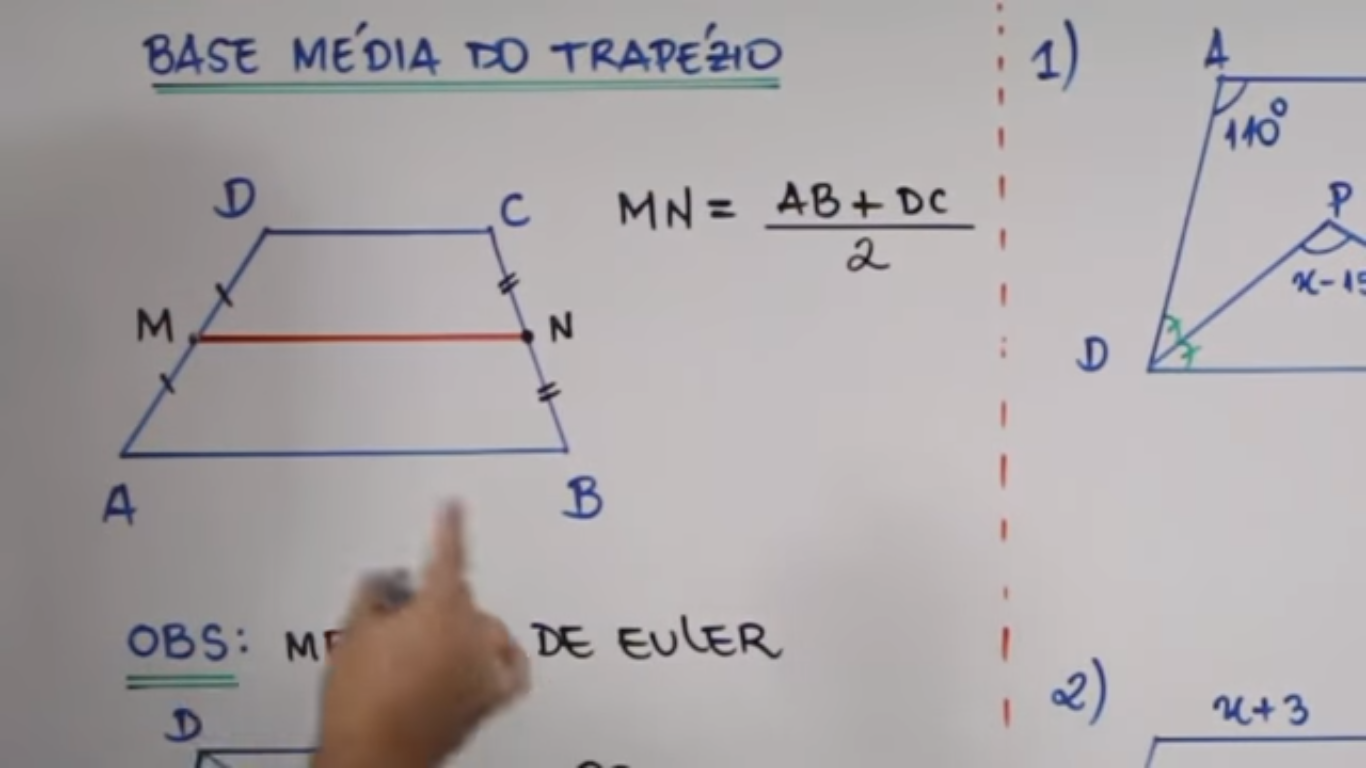 BASE MÉDIA DO TRAPÉZIO
D
C
MN = AB + DC / 2
M
N
A
B
OBS: DE EULER
D
1)
A
110°
P
x-15
D
2)
x+3